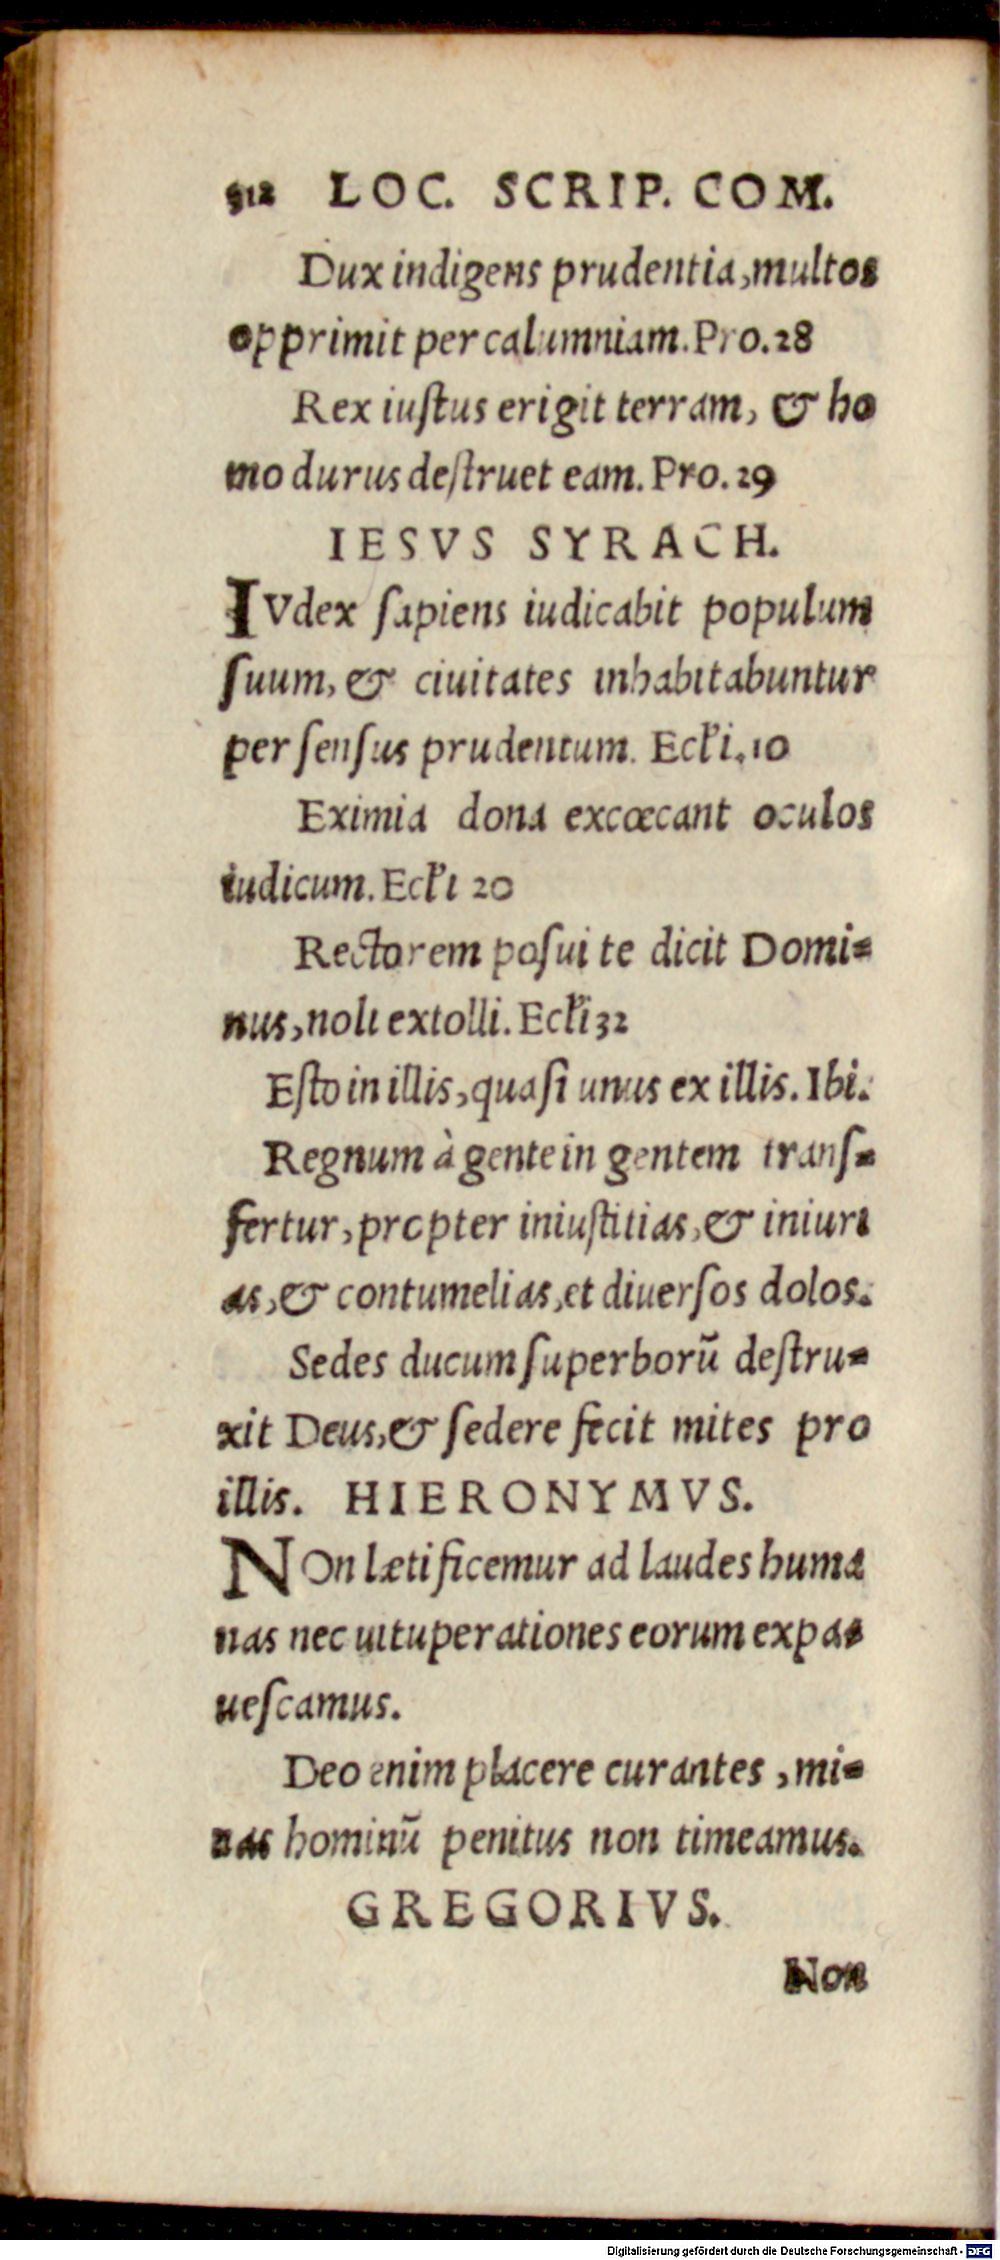 912 LOC. SCRIP. COM.
Dux indigens prudentia, multos
opprimit per calumniam. Pro. 28
Rex iuſtus erigit terram, & ho
mo durus deſtruet eam. Pro. 29
IESVS SYRACH.
IVdex ſapiens iudicabit populum
ſuum, & ciuitates inhabitabuntur
per ſenſus prudentum. Ecłi. 10
Eximia dona excœcant oculos
iudicum. Ecłi 20
Rectorem poſui te dicit Domi=
nus, noli extolli. Ecłi 32
Eſto in illis, quaſi unus ex illis. Ibi.
Regnum à gente in gentem tranſ=
fertur, propter iniuſtitias, & iniuri
as, & contumelias, et diuerſos dolos.
Sedes ducum ſuperborū deſtru=
xit Deus, & ſedere fecit mites pro
illis. HIERONYMVS.
NOn lætificemur ad laudes huma
nas nec uituperationes eorum expa=
ueſcamus.
Deo enim placere curantes, mi=
nas hominū penitus non timeamus.
GREGORIVS.
Non
Digitalisierung gefördert durch die Deutsche Forschungsgemeinschaft - DFG